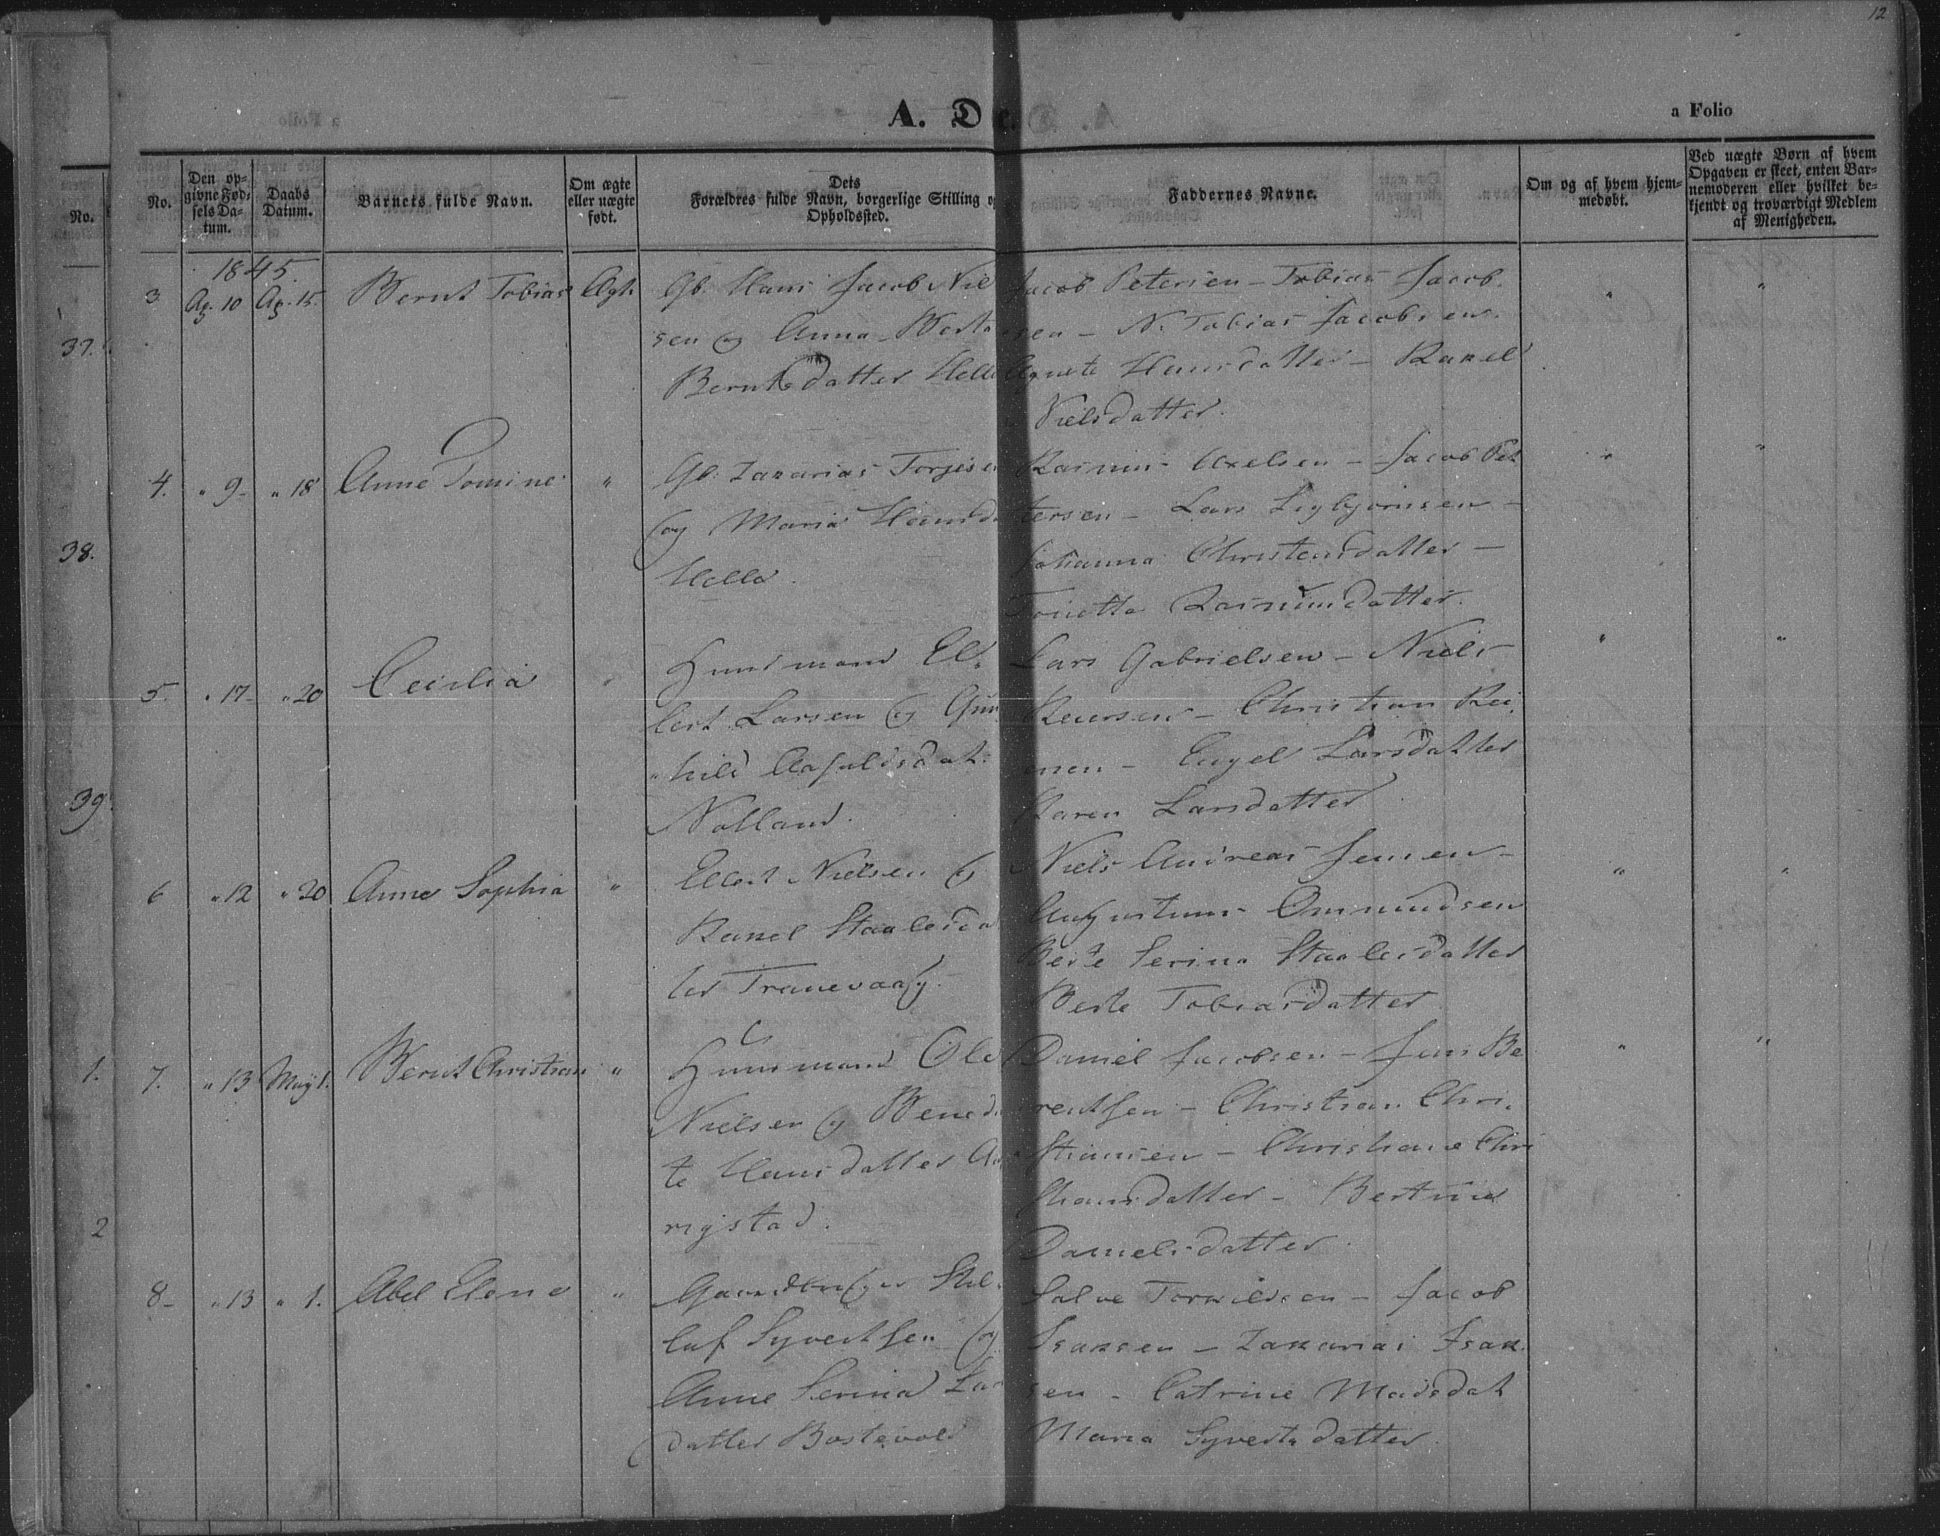 12
A. De
a Folio
No.
Den op-
givne Fød-
sels Da-
tum.
Daabs
Datum.
Barnets fulde Navn.
Om ægte
eller uægte
født.
Dets
Forældres fulde Navn, borgerlige Stilling og
Opholdssted.
Faddernes Navne.
Om og af hvem hjem-
medøbt.
Ved uægte Børn af hvem
Opgaven er skeet, enten Bar-
nemoderen eller hvilket be-
kjendt og troværdigt Medlem
af Menigheden.
No.
37.
38.
39
1.
2
1845.
3 Ap. 10 Ap. 15. Bernt Tobias Ægte
Gb. Hans Jacob Niel
sen og Anna Berta
Berntsdatter Helle
Jacob Petersen - Tobias Jacob
sen - N. Tobias Jacobsen.
Agnete Hansdatter - Rakel
Nielsdatter.
4. " 9 - " 18 Anne Tomine "
Gb. Zakarias Torjesen
og Maria Hansda
Helle.
Rasmus Axelsen - Jacob Pet
tersen - Lars Sigbjørnsen -
Johanna Christensdatter -
Tonette Rasmusdatter.
5. " 17 - " 20 Cecilia "
Huusmand El-
lert Larsen og Gun-
hild Aasuldsdat:
Nolland.
Lars Gabrielsen - Niels
Reiersen - Christian Rei-
ersen - Engel Larsdatter
Karen Larsdatter
6 " 12 " 20 Anne Sophia "
Ellert Nielsen og
Rakel Staalesdat
ter Tranevaag.
Niels Andreas Jensen -
Augustinus Ommundsen
Berte Serina Staalesdatter
Berte Tobiasdatter
7. " 13 May 1. Bernt Christian "
Huusmand Ole
Nielsen og Bened
te Hansdatter Aa
rigstad.
Daniel Jacobsen - Jens Be
rentsen - Christian Chri-
stiansen - Christiane Chri
stiansdatter - Bertine
Danielsdatter.
8 - " 13 " 1. Abel Elene "
Gaardbruger Stel-
luf Syvertsen og
Anne Serina Lars
datter Bostevold
Salve Torkildsen - Jacob
Isaksen - Zakarias Isak
sen - Catrine Madsdat
Maria Syvertsdatter